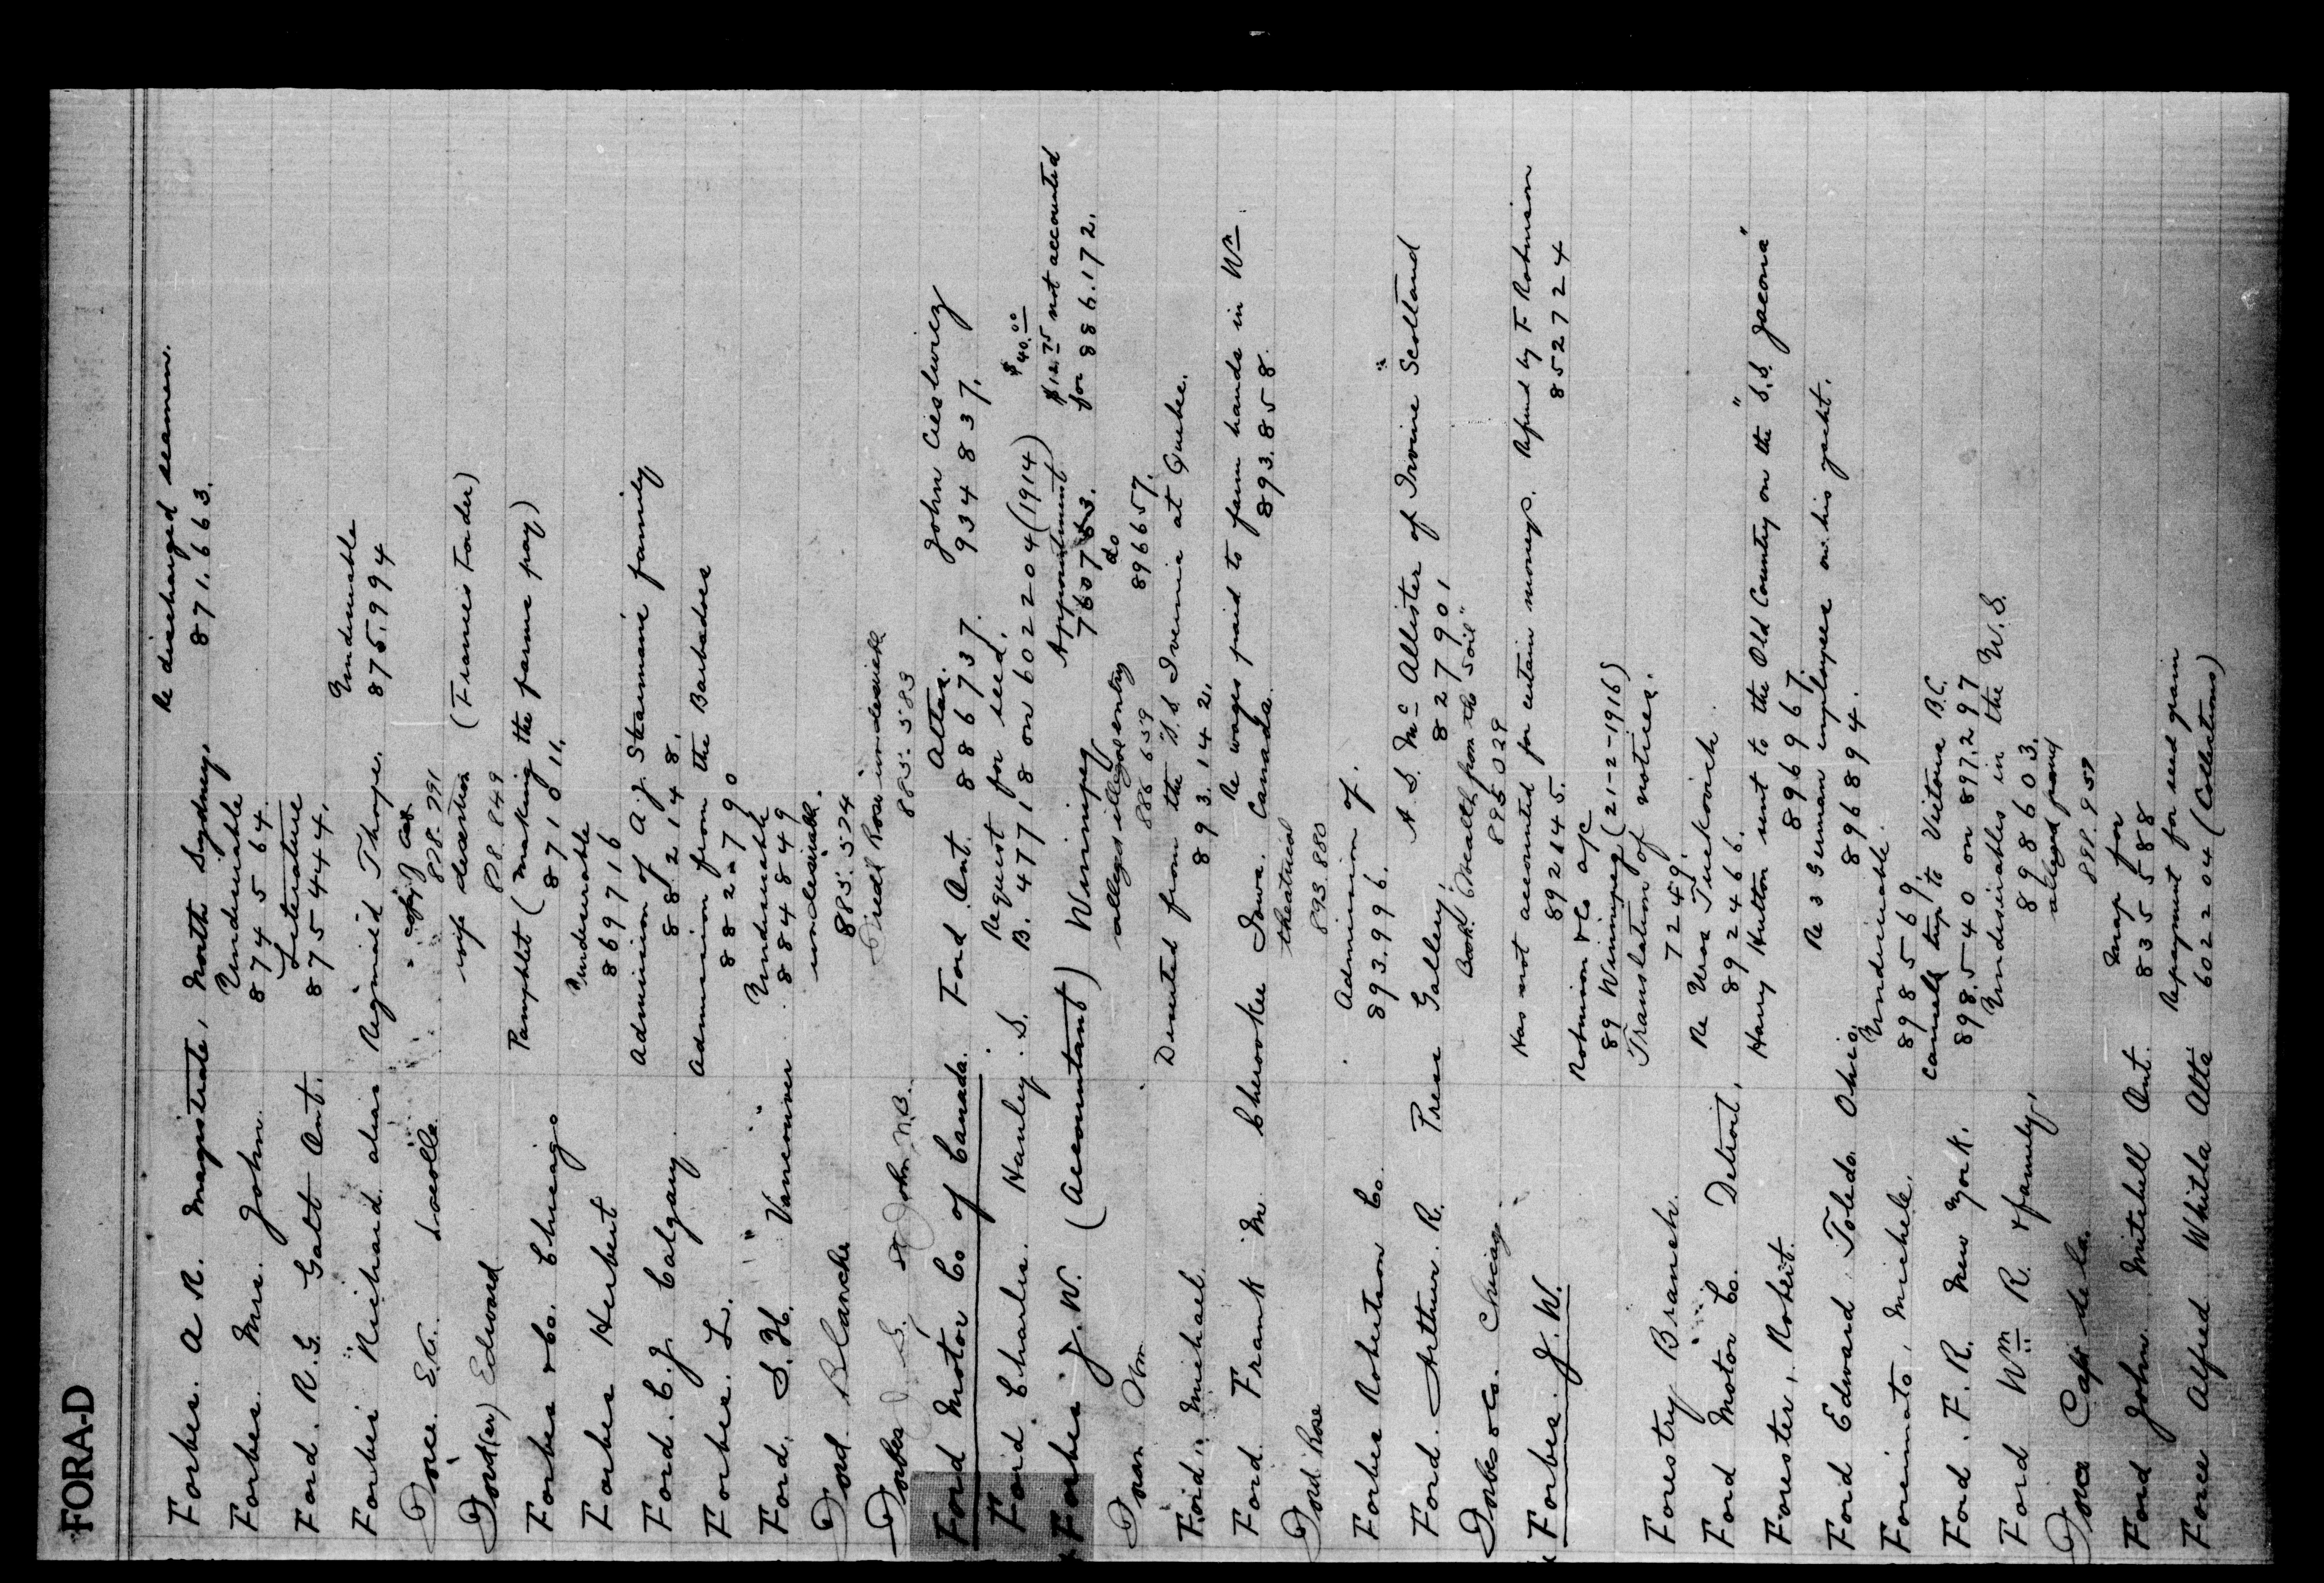 FORA-D
Forbes. A R. Magistrate, North Sydney. Re discharged seamen.
871,663.
Forbes. Mrs. John. Undesirable
874564.
Ford. R.G. Galt Ont. Literature
875444.
Forbes Richard alias Reginald Thorpe. Undesirable
875,994
Force. E.C. Lacolle
828.791
Ford(er) Edward wife desertion (Frances Forder)
828.849
Forbes & Co. Chicago Pamphlet (Making the farm pay)
871011.
Forbes Herbert Undesirable
869716
Ford. C.J. Calgary Admission of A.J. Stearman's family
882148.
Forbes. L. Admission from the Barbadoes
882790
Ford. S.H. Vancouver Undesirable
884849
Ford Blanche undesirable.
885.524
Forbes J S. St John N.B. Rose undesirable
885.583
Ford Motor Co of Canada. Ford Ont. Attar. John Cieslwicz
886737. 934837.
Ford Charles. Hanley. S. Request for seed.
B. 47718 on 602204 (1914)
Forbes J.W. (Accountant) Winnipeg Appointment $40.00
$12.75 not accounted
760763. for 886.172.
do
896657.
Foran Wm alleges illegal entry
886659
Ford. Michael. Deserted from the S.S. Ivernia at Quebec.
893.142.
Ford Frank M Cherookee Iowa. Re wages paid to farm hands in Wm
Canada. 893.858.
Ford Rose theatrical
893.880
Forbes Robertson Co. Admission of.
893.996.
Ford. Arthur. R. Press Gallery. A. S. McAllister of Irvine Scotland
827901
Forbes & Co. Chicago. Book "Wealth from the Soil"
895029
Forbes. J.W. Has not accounted for certain moneys. Refund by F Robinson
892145. 852724
Robinson & Co a/c
89 Winnipeg (21-2-1916)
Forestry Branch. Translation of notices.
72459.
Ford Motor Co. Detroit. Re Uros Tuckovich.
892466.
Forester, Robert. Harry Hutton sent to the Old Country on the "S.S. Jacona"
896967.
Ford Edward Toledo. Ohio. Re 3 German employees on his yacht.
896894.
Foreinnato, Michele. Undesirable.
898569.
Ford. F.R. New York. Cancels trip to Victoria B.C.
898.540 on 897.297
Ford Wm R. & family. Undesirables in the U.S.
898603.
Force Cap de la. alleged
881.957
Ford John Mitchell Ont. Map for
835588
Force Alfred Whitla Alta Repayment for seed grain
602204 (Collections)